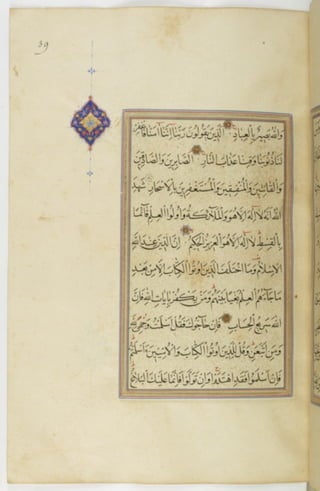 39
والله بصير بالعباد الذين يقولون ربنا اننا امنا فاغفر
لنا ذنوبنا وقنا عذاب النار الصابرين والصادقين
والقانتين والمنفقين والمستغفرين بالاسحار شهد
الله انه لا اله الا هو والملائكة واولوا العلم قائما
بالقسط لا اله الا هو العزيز الحكيم ان الدين عند الله
الاسلام وما اختلف الذين اوتوا الكتاب الا من بعد
ما جاءهم العلم بغيا بينهم ومن يكفر بايات الله فان
الله سريع الحساب فان حاجوك فقل اسلمت وجهي لله
ومن اتبعن وقل للذين اوتوا الكتاب والاميين ءاسلمتم
فان اسلموا فقد اهتدوا وان تولوا فانما عليك البلاغ